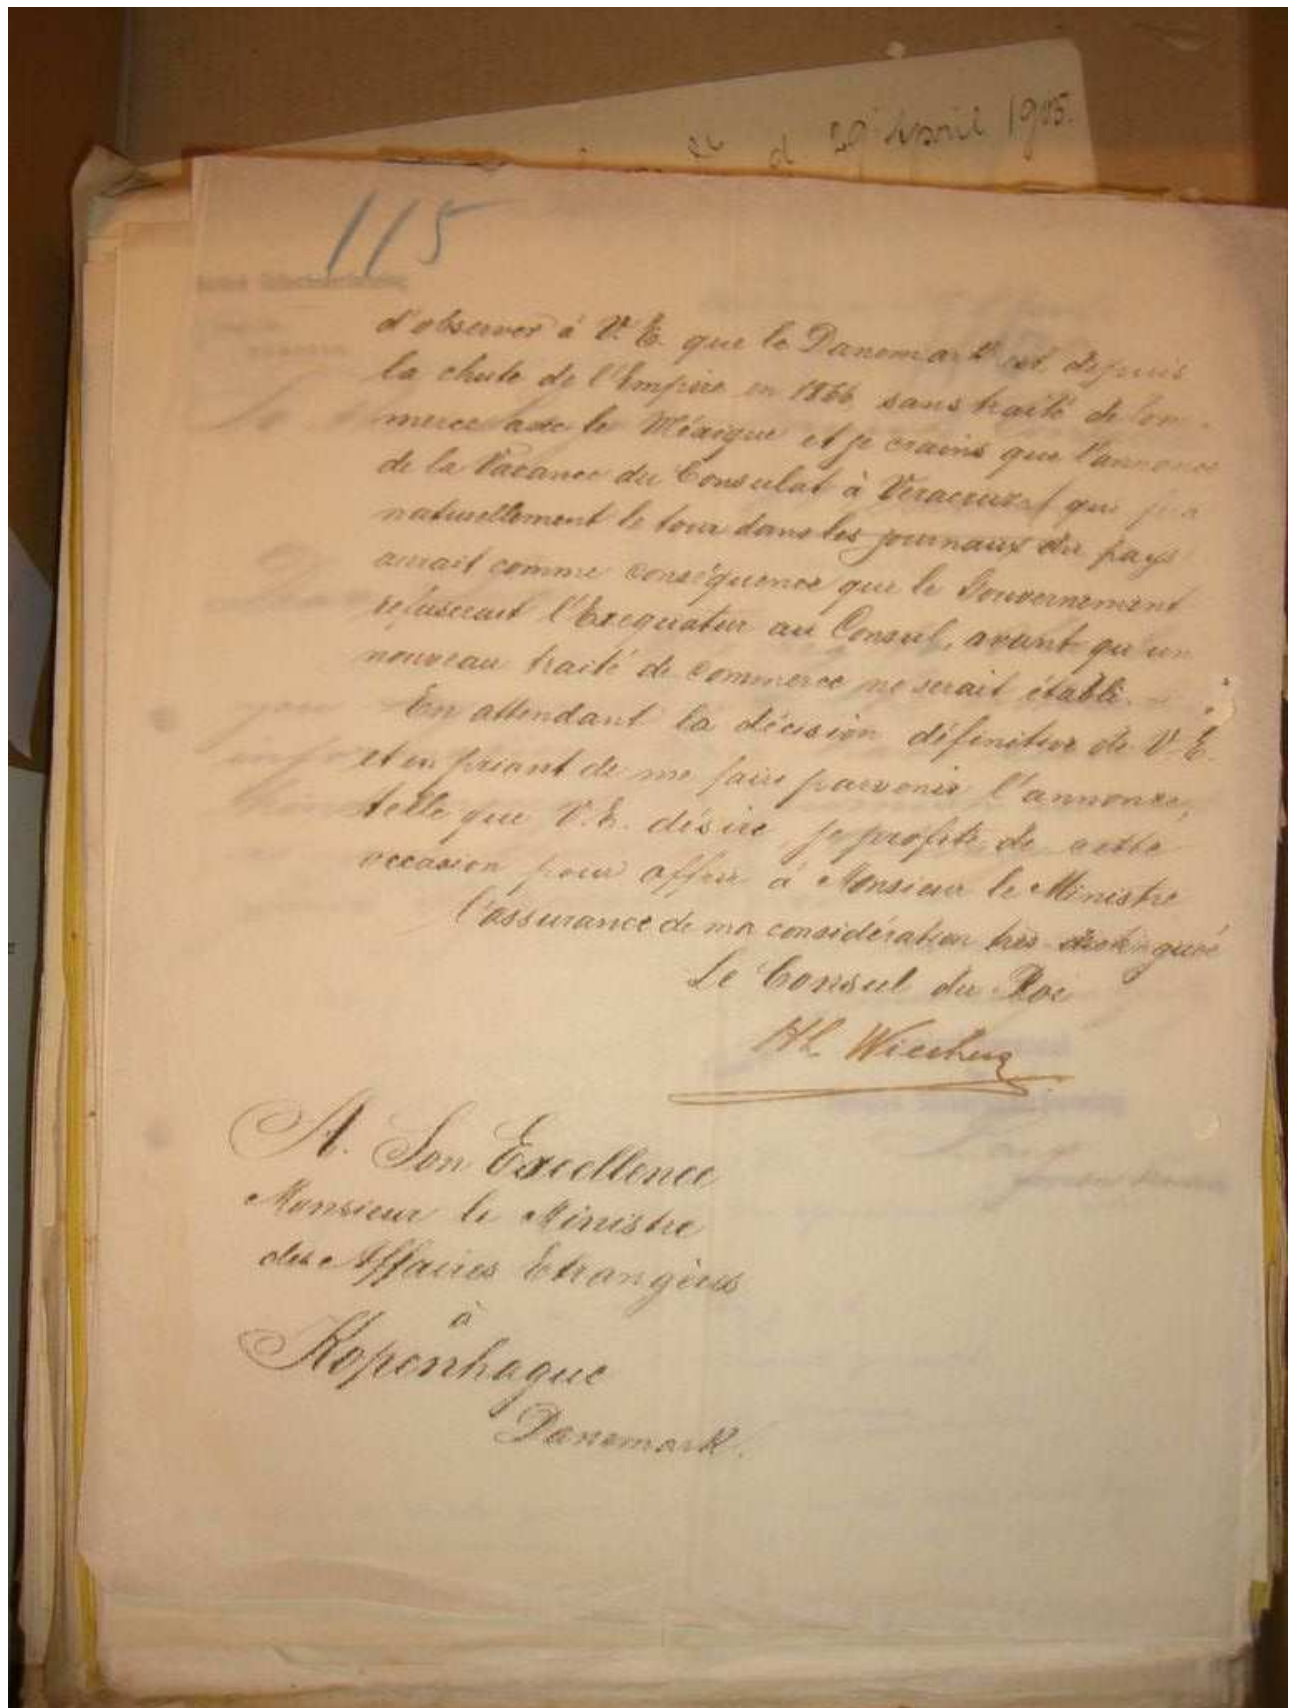 d 29 April 1905.
115
d'observer à V. E. que le Danemark est depuis
la chute de l'Empire en 1866 sans traité de Com-
merce avec le Méxique et je crains que l'annonce
de la Vacance du Consulat à Veracruz qui fera
naturellement le tour dans les journaux du pays
aurait comme conséquence que le Gouvernement
refuserait l'Exequatur au Consul, avant qu'un
nouveau traité de commerce ne serait établi. -
En attendant la décision définitive de V. E.
et en priant de me faire parvenir l'annonce,
telle que V. E. désire je profite de cette
occasion pour offrir à Monsieur le Ministre
l'assurance de ma considération très distinguée
Le Consul du Roi
A. Son Excellence
Monsieur le Ministre
des Affaires Etrangères
à
Kopenhague
Danemark.